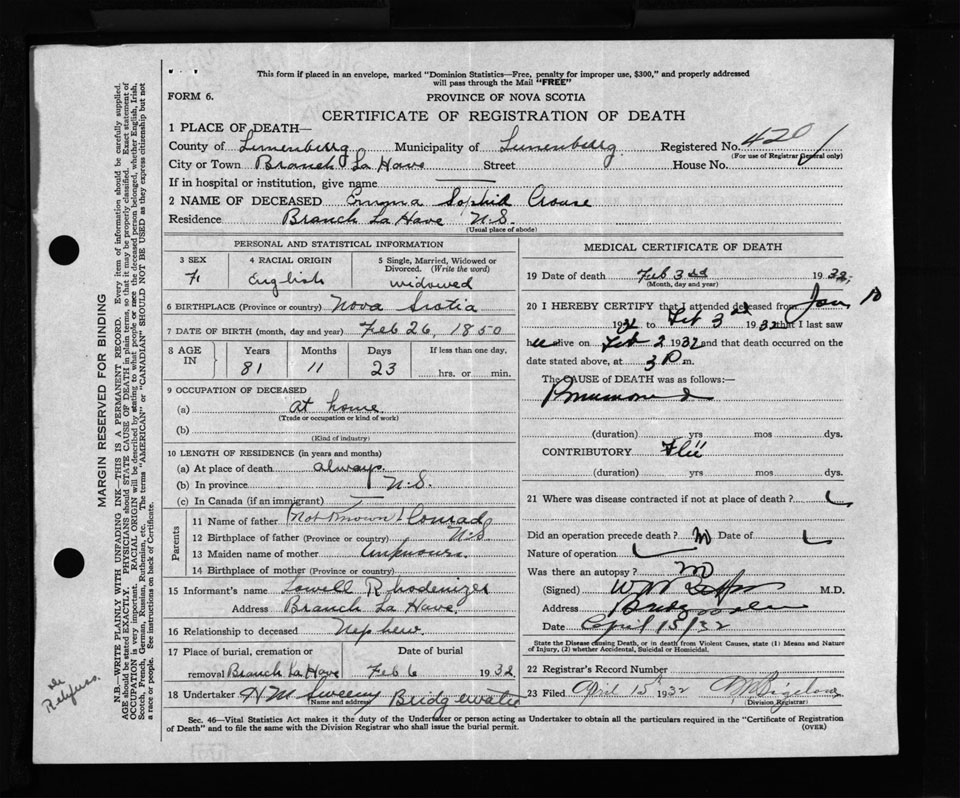 This form if placed in an envelope, marked "Dominion Statistics—Free, penalty for improper use, $300," and properly addressed
will pass through the Mail "FREE"
FORM 6. PROVINCE OF NOVA SCOTIA
CERTIFICATE OF REGISTRATION OF DEATH
1 PLACE OF DEATH—
County of Lunenburg Municipality of Lunenburg Registered No. 420
(For use of Registrar General only)
City or Town Branch La Have Street House No.
If in hospital or institution, give name
2 NAME OF DECEASED Emma Sophia Crouse
Residence Branch La Have N.S.
(Usual place of abode)
PERSONAL AND STATISTICAL PARTICULARS
3 SEX 4 RACIAL ORIGIN 5 Single, Married, Widowed or
Divorced. (Write the word)
F English widowed
6 BIRTHPLACE (Province or country) Nova Scotia
7 DATE OF BIRTH (month, day and year) Feb 26, 1850
8 AGE IN Years Months Days If less than one day,
81 11 23 hrs. or min.
9 OCCUPATION OF DECEASED
(a) at home
(Trade or occupation or kind of work)
(b)
(Kind of industry)
10 LENGTH OF RESIDENCE (in years and months)
(a) At place of death always
(b) In province N.S.
(c) In Canada (if an immigrant)
Parents
11 Name of father (Not Known) Conrad
12 Birthplace of father (Province or country) N.S
13 Maiden name of mother Unknown.
14 Birthplace of mother (Province or Country)
15 Informant's name Lowell Rhodenizer
Address Branch La Have.
16 Relationship to deceased Nephew.
17 Place of burial, cremation or Date of burial
removal Branch La Have Feb 6 1932
18 Undertaker H M Sweeny Bridgewater
Name and address
MEDICAL CERTIFICATE OF DEATH
19 Date of death Feb 3rd 1932
(Month, day and year)
20 I HEREBY CERTIFY that I attended deceased from Jan 10
1932 to Feb 3rd 1932 that I last saw
her alive on Feb 2 1932 and that death occurred on the
date stated above, at 3 P m.
The CAUSE OF DEATH was as follows:—
Pneumonia
(duration) yrs mos dys.
CONTRIBUTORY Flu
(duration) yrs mos dys.
21 Where was disease contracted if not at place of death?
Did an operation precede death? No Date of
Nature of operation
Was there an autopsy? No
(Signed) M.D.
Address Bridgewater
Date April 15/32
State the Disease causing Death, or in death from Violent Causes, state (1) Means and Nature
of Injury, (2) whether Accidental, Suicidal or Homicidal.
22 Registrar's Record Number
23 Filed April 15th 1932
(Division Registrar)
Sec. 46—Vital Statistics Act makes it the duty of the Undertaker or person acting as Undertaker to obtain all the particulars required in the "Certificate of Registration
of Death" and to file the same with the Division Registrar who shall issue the burial permit. (OVER)
MARGIN RESERVED FOR BINDING
N.B.—WRITE PLAINLY WITH UNFADING INK—THIS IS A PERMANENT RECORD. Every item of information should be carefully supplied.
AGE should be stated EXACTLY. PHYSICIANS should STATE CAUSE OF DEATH in plain terms, so that it may be properly classified. Exact statement of
OCCUPATION is very important. RACIAL ORIGIN will be described by stating to what people or race the deceased person belonged, whether English, Irish,
Scotch, French, German, Russian, Ruthenian, etc. The terms "AMERICAN" or "CANADIAN" SHOULD NOT BE USED as they express citizenship but not
a race or people. See instructions on back of Certificate.